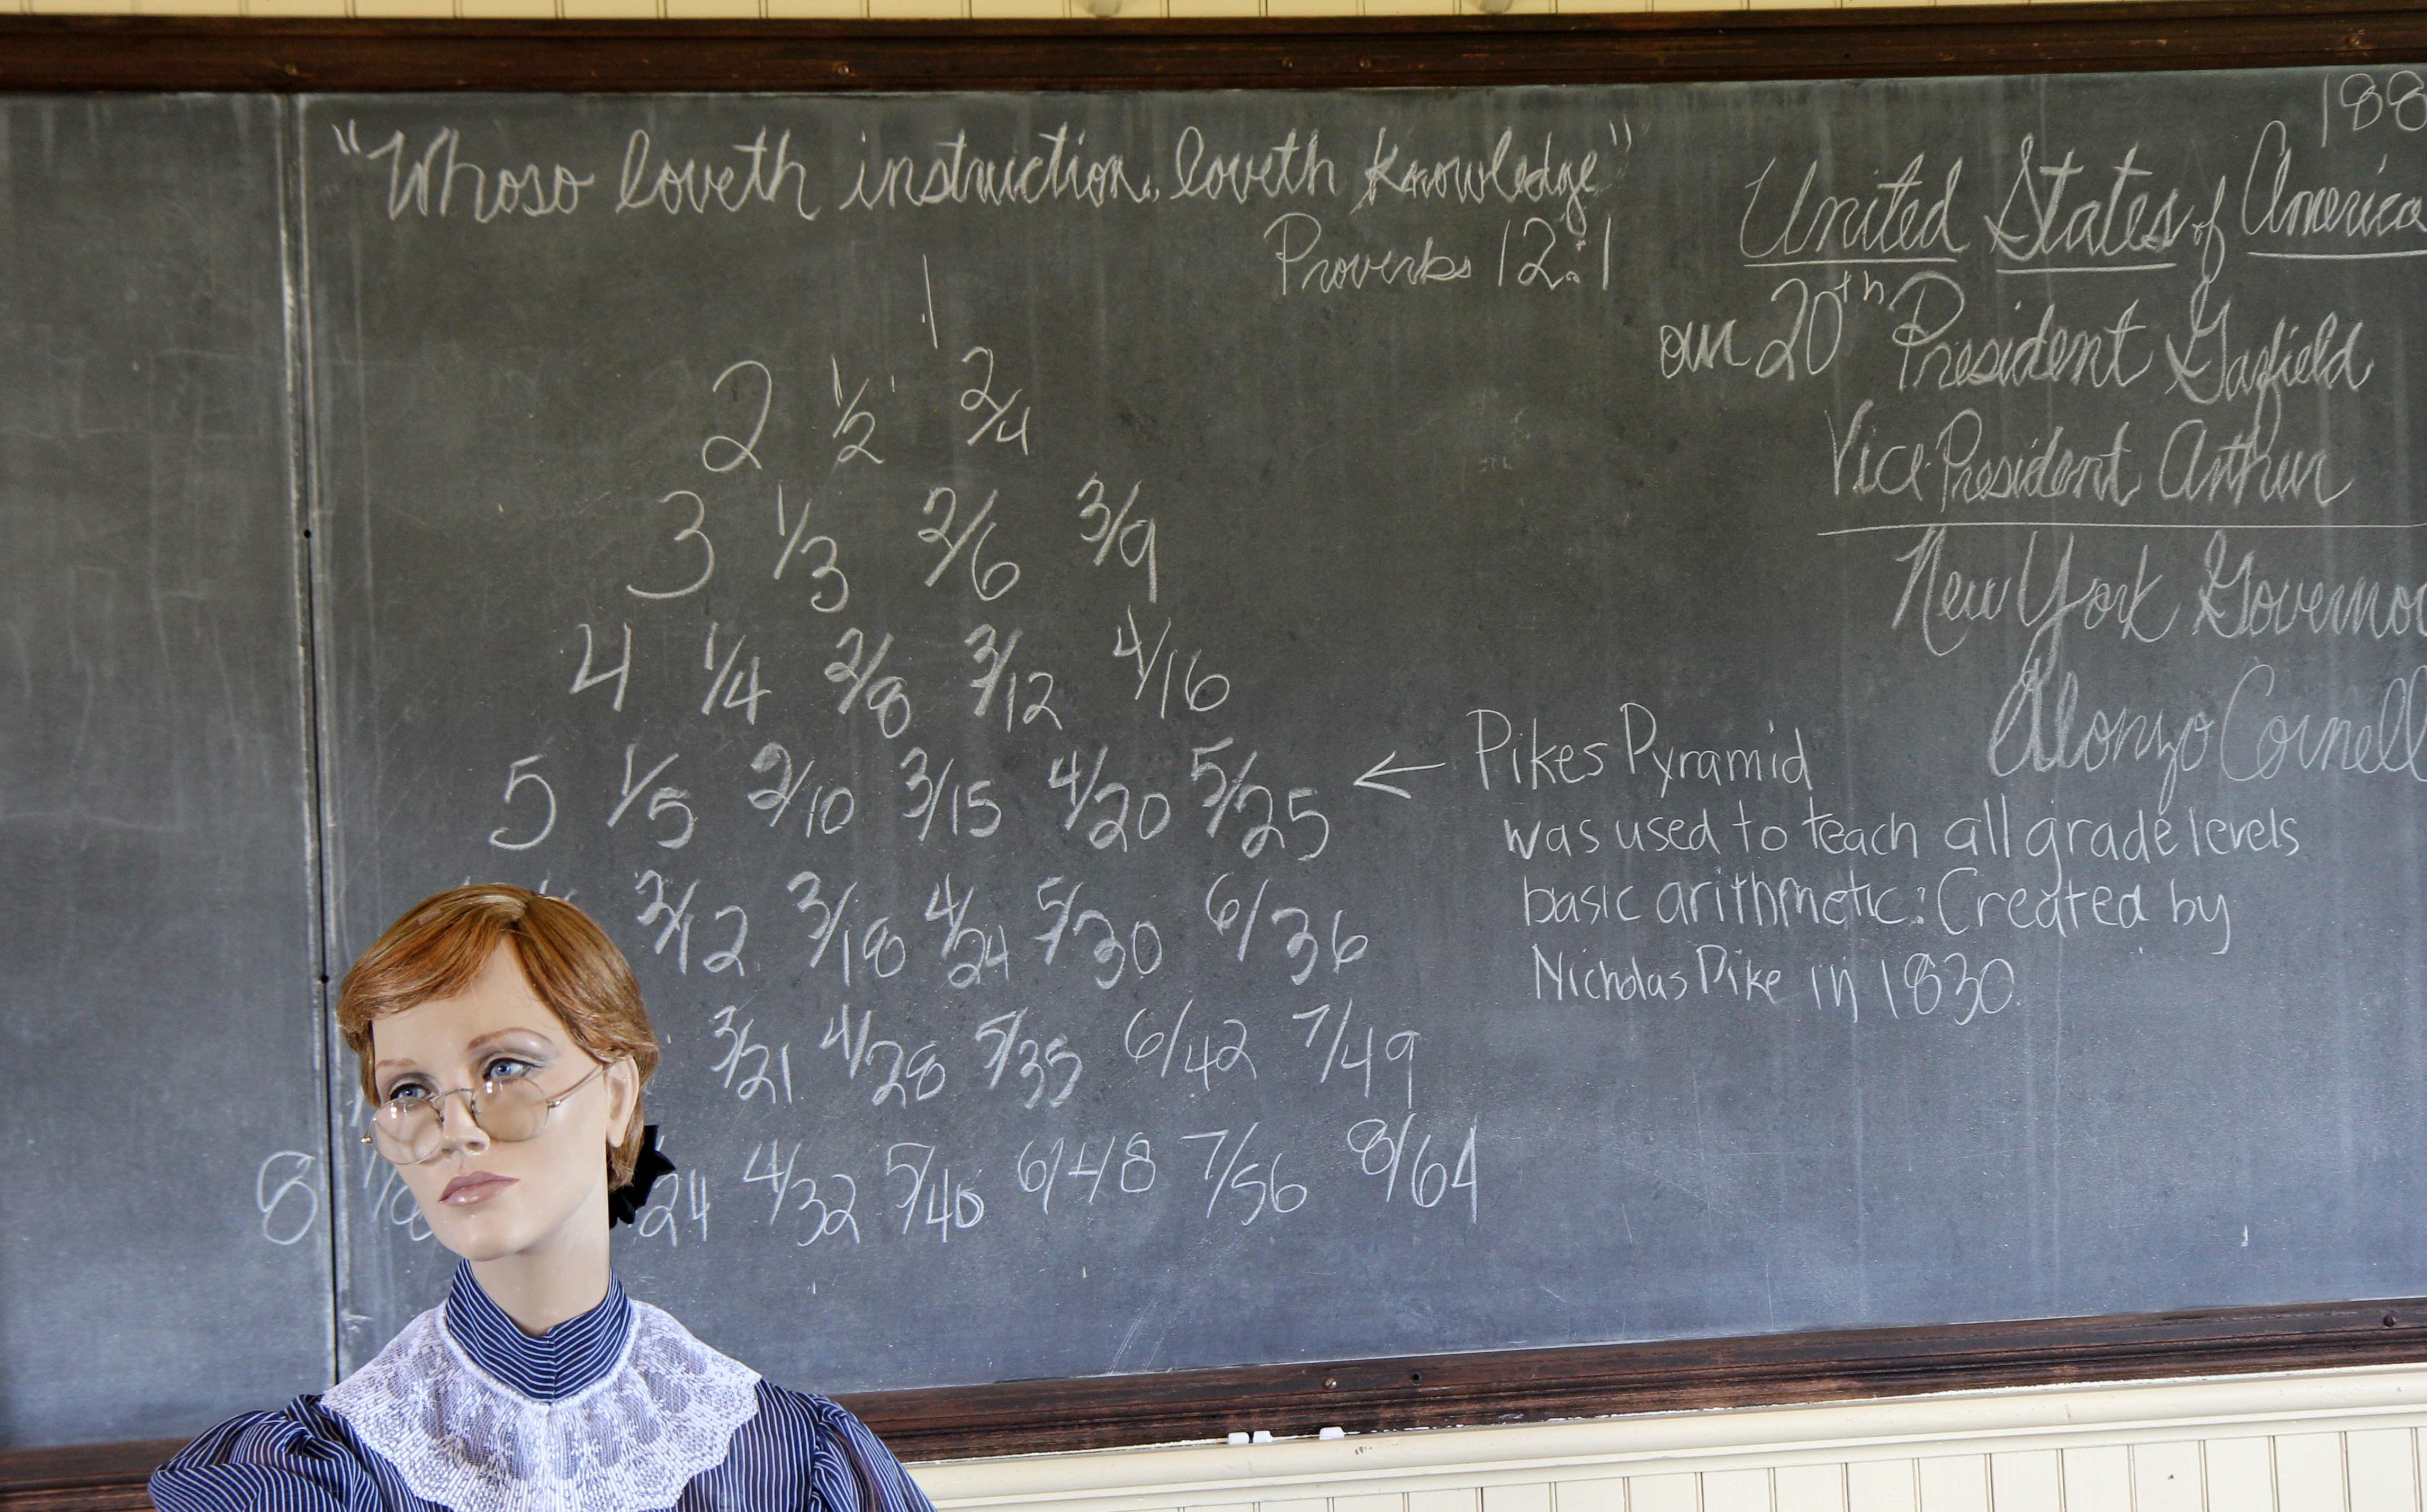 "Whoso loveth instruction, loveth knowledge"
Proverbs 12:1
1
2 1/2 2/4
3 1/3 2/6 3/9
4 1/4 2/8 3/12 4/16
5 1/5 2/10 3/15 4/20 5/25
2/12 3/18 4/24 5/30 6/36
3/21 4/28 5/35 6/42 7/49
8 1/8 24 4/32 5/40 6/48 7/56 8/64
← Pikes Pyramid
was used to teach all grade levels
basic arithmetic: Created by
Nicholas Pike in 1830.
188
United States of America
our 20th President Garfield
Vice President Arthur
New York Governor
Alonzo Cornell